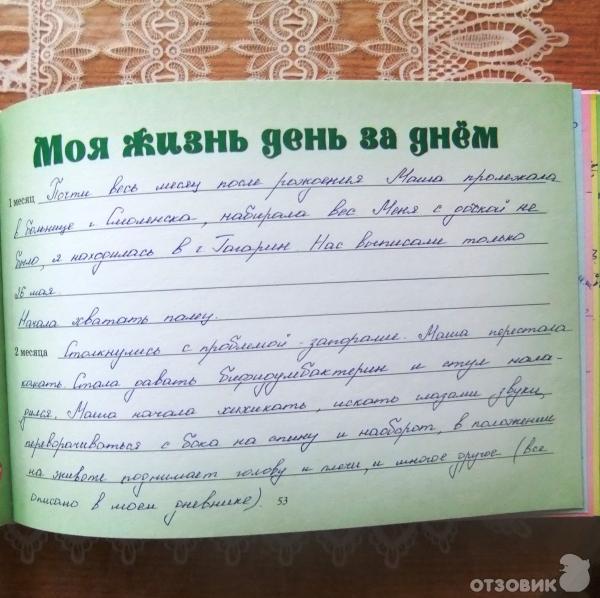 Моя жизнь день за днём
1 месяц Почти весь месяц после рождения Маша пролежала
в больнице г. Смоленска, набирала вес. Меня с дочкой не
было, я находилась в г. Гагарин. Нас выписали только
26 мая.
Начала хватать палец.
2 месяца Столкнулись с проблемой - запорами. Маша перестала
какать. Стала давать бифидумбактерин и стул нала-
дился. Маша начала хихикать, искать глазами звуки,
переворачиваться с бока на спину и наоборот, в положении
на животе поднимает голову и плечи, и многое другое (все
описано в моем дневнике).
53
ОТЗОВИК